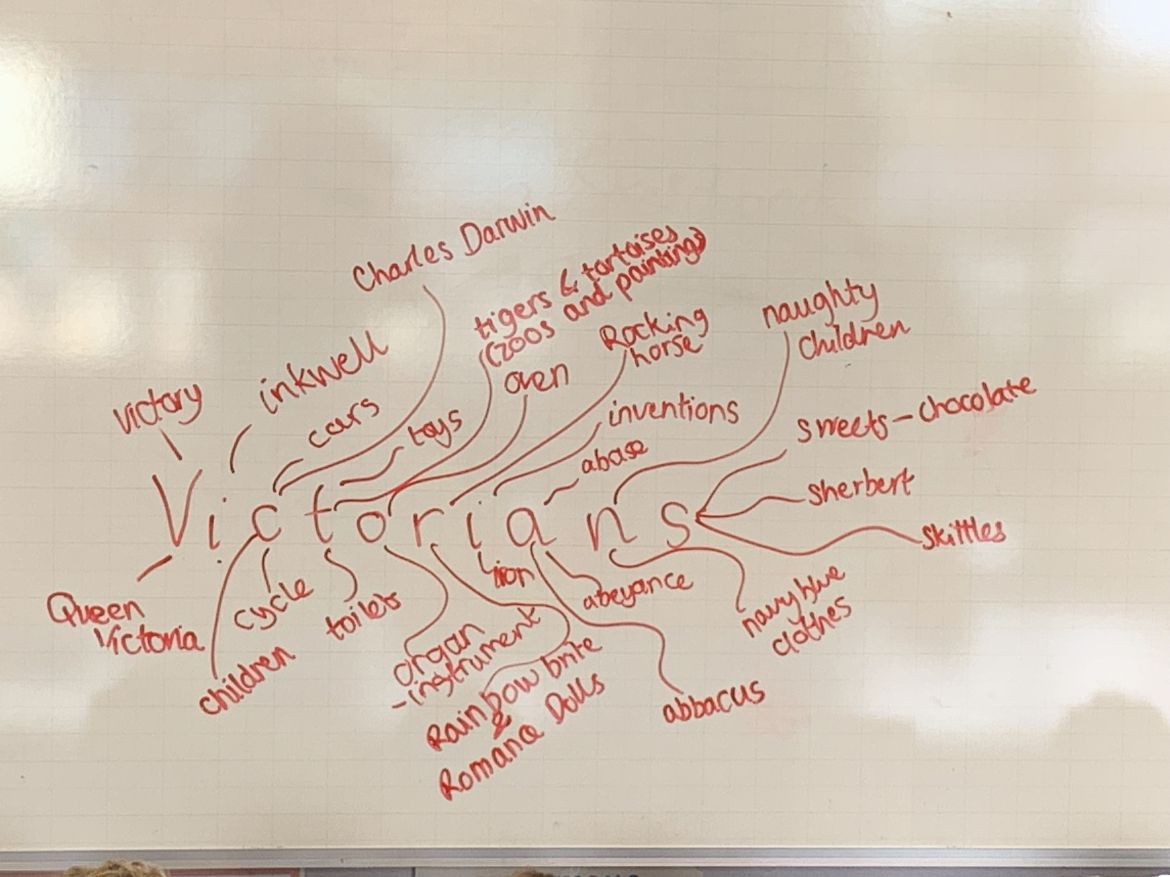 Charles Darwin
tigers & tortoises
(zoos and paintings)
Rocking
horse
naughty
children
inkwell
oven
victory
cars
toys
inventions
sweets - chocolate
abase
sherbert
Victorians
skittles
iron
Queen
Victoria
cycle
toilets
abeyance
navy blue
clothes
children
organ
- instrument
Rainbow brite
&
Romance Dolls
abbacus